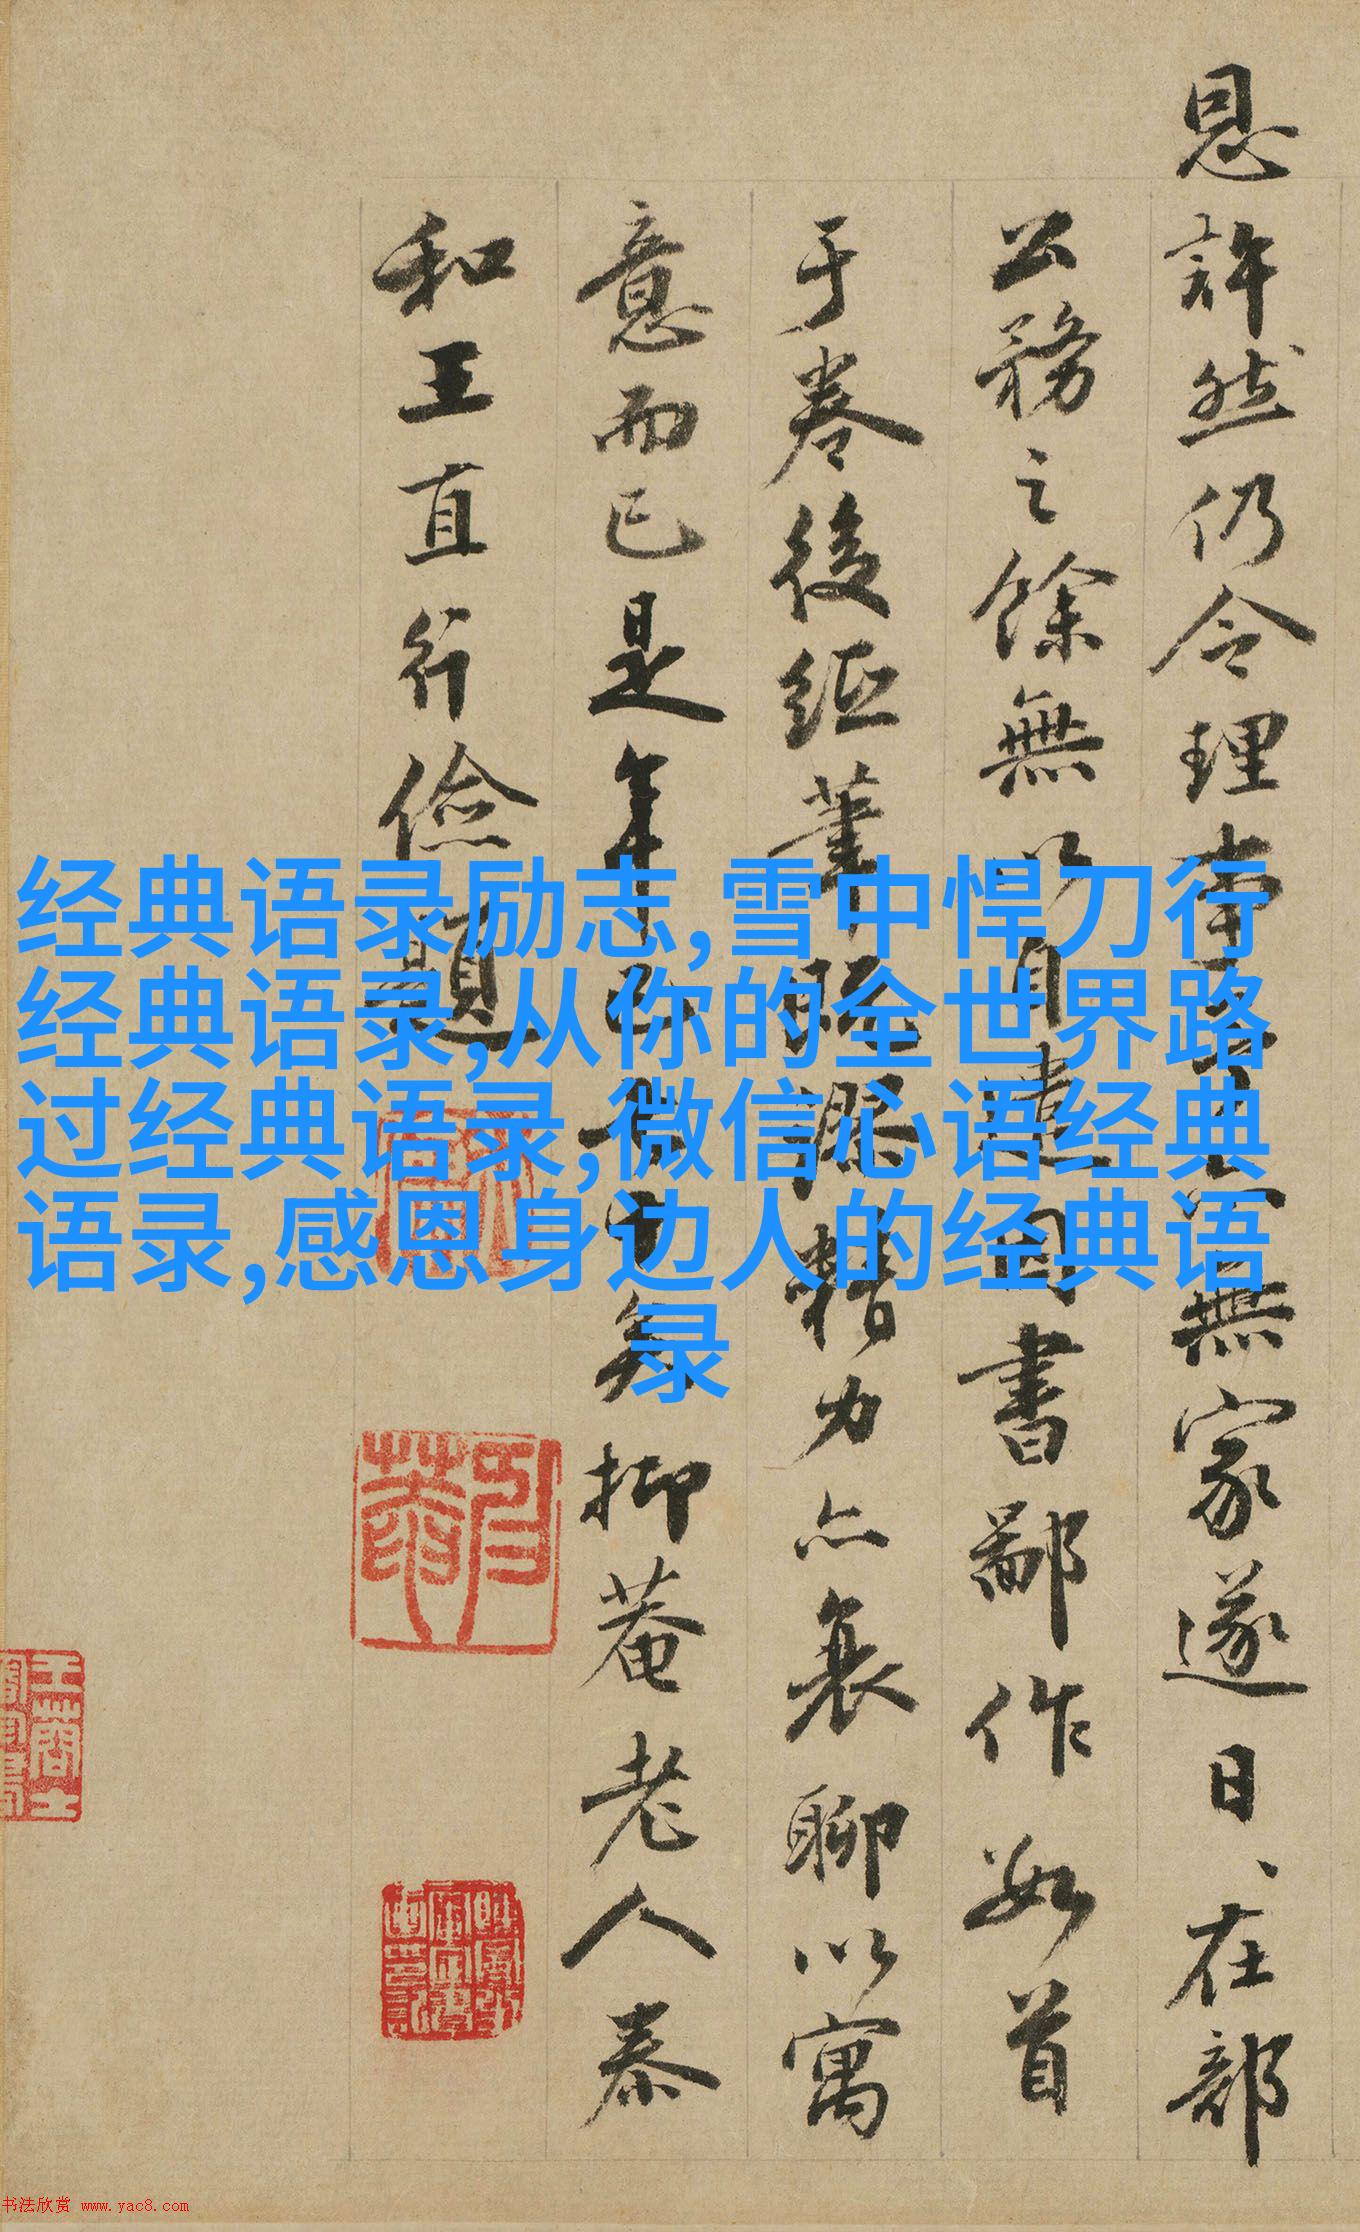 恩許然仍令理無家遂日、在部
公務之餘無以自遣因書鄙作數首
于卷後紙筆精力亦衰聊以寓
意而已是年已七十矣抑菴老人泰
和王直行儉題
经典语录励志,雪中悍刀行
经典语录,从你的全世界路
过经典语录,微信心语经典
语录,感恩身边人的经典语
录
书法欣赏 www.yac8.com